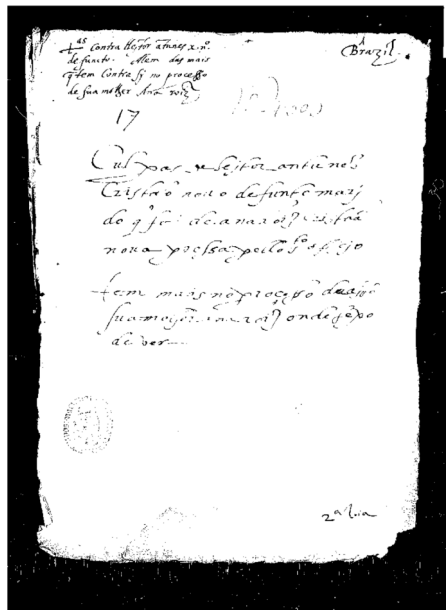 tas Contra Heitor antunes x.n.
defuncto. Alem das mais
q tem Contra sj no processo
de sua molher Ana roiz
Brazil.
17
Culpas de heitor antunes
Cristão novo defunto mari
do q foi de ana roiz cristaã
nova presa pello sto officio
tem mais no processo
sua molher ana roiz onde se po
de ver
2ª via